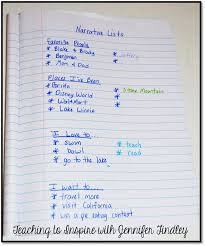 Narrative Lists
Favorite People
* Blake & Brooke
* Benjman
* Mom & Dad
Places I've Been
* Florida * Stone Mountain
* Disney World
* Wal-Mart
* Lake Winnie
I love to...
* swim * teach
* bowl * read
* go to the lake
I want to....
* travel more
* visit California
* win a pie eating contest
Teaching to Inspire with Jennifer Findley